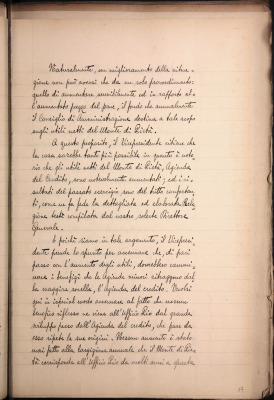 Naturalmente, un miglioramento della situa-
zione non può aversi che da un solo provvedimento:
quello di aumentare sensibilmente ed in rapporto al-
l'aumentato prezzo del pane, il fondo che annualmente
il Consiglio di Amministrazione destina a tale scopo
sugli utili netti del Monte di Pietà.
A questo proposito, il Vicepresidente ritiene che
la cosa sarebbe tanto più possibile in quanto è noto
rio che gli utili netti del Monte di Pietà, Azienda
del Credito, sono notevolmente aumentati, ed i ri-
sultati del passato esercizio sono del tutto confortan-
ti, come ne fa fede la dettagliata ed elaborata
gione testè compilata dal nostro solerte Direttore
Generale.
E poichè siamo in tale argomento, il Vicepresi-
dente prende lo spunto per accennare che, di pari
passo con l'aumento degli utili, dovrebbero aumen-
tare i benefizi che le Aziende minori ritraggono dal
la maggiore sorella, l'Azienda del credito. Vuolsi
qui in ispecial modo accennare al fatto che nessun
benefizio riflesso ne viene all'Ufficio Pio dal grande
sviluppo preso dall'Azienda del credito, che pure da
esso ripete le sue origini. Nessun aumento è stato
mai fatto alla largizione annuale che il Monte di Pie-
tà corrisponde all'Ufficio Pio da molti anni a questa